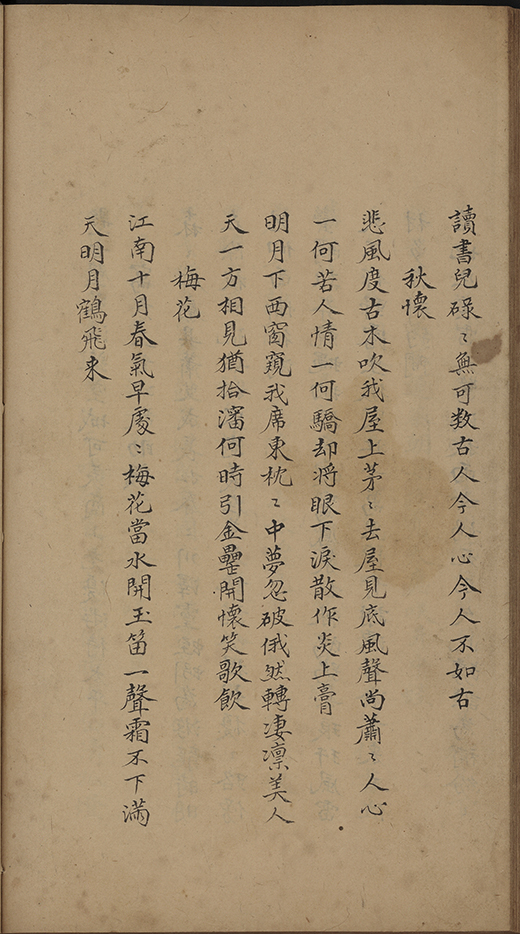 讀書兒碌〻無可数古人今人心今人不如古
秋懷
悲風度古木吹我屋上茅〻去屋見底風聲尚蕭〻人心
一何苦人情一何驕却将眼下淚散作炎上膏
明月下西窗窺我席東枕〻中夢忽破俄然轉凄凛美人
天一方相見猶拾瀋何時引金罍開懷笑歌飲
梅花
江南十月春氣早處〻梅花當水開玉笛一聲霜不下滿
天明月鶴飛来